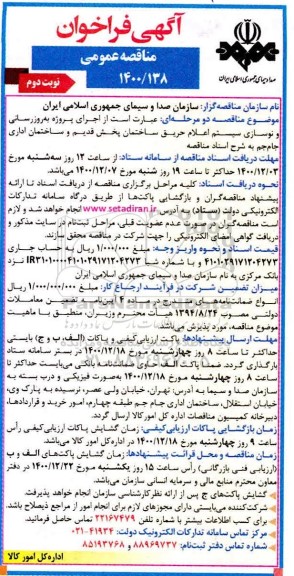 آگهی فراخوان
مناقصه عمومی
۱۴۰۰/۱۳۸
نوبت دوم
صدا و سیمای جمهوری اسلامی ایران
نام سازمان مناقصه‌گزار: سازمان صدا و سیمای جمهوری اسلامی ایران
موضوع مناقصه دو مرحله‌ای: عبارت است از اجرای پروژه به‌روزرسانی
و نوسازی سیستم اعلام حریق ساختمان پخش قدیم و ساختمان اداری
جام‌جم به شرح اسناد مناقصه
مهلت دریافت اسناد مناقصه از سامانه ستاد: از ساعت ۱۲ روز سه‌شنبه مورخ
۱۴۰۰/۱۲/۰۳ حداکثر تا ساعت ۱۹ روز شنبه مورخ ۱۴۰۰/۱۲/۰۷ می‌باشد.
نحوه دریافت اسناد: کلیه مراحل برگزاری مناقصه از دریافت اسناد تا ارائه
پیشنهاد مناقصه‌گران و بازگشایی پاکت‌ها از طریق درگاه سامانه تدارکات
الکترونیکی دولت (ستاد) به آدرس www.setadiran.ir انجام خواهد شد و لازم
است مناقصه‌گران در صورت عدم عضویت قبلی، مراحل ثبت‌نام در سایت مذکور و
دریافت گواهی امضای الکترونیکی را جهت شرکت در مناقصه محقق سازند.
قیمت اسناد و نحوه واریز وجه: مبلغ ۱/۰۰۰/۰۰۰ ریال به حساب جاری
بانک مرکزی به نام سازمان صدا و سیمای جمهوری اسلامی ایران
میزان تضمین شرکت در فرآیند ارجاع کار: مبلغ ۱/۰۰۰/۰۰۰/۰۰۰ ریال
انواع ضمانت‌نامه‌های مندرج در ماده ۴ آیین‌نامه تضمین معاملات
دولتی مصوب ۱۳۹۴/۸/۲۴ هیأت محترم وزیران، منطبق با ماهیت
موضوع مناقصه، مورد پذیرش می‌باشد.
مهلت ارسال پیشنهادها: پاکت ارزیابی کیفی و پاکات (الف، ب و ج) بایستی
حداکثر تا ساعت ۸ روز چهارشنبه مورخ ۱۴۰۰/۱۲/۱۸ در بستر سامانه ستاد
بارگذاری گردد. ضمناً پاکت الف حاوی ضمانتنامه بانکی می‌بایست حداکثر تا
ساعت ۸ روز چهارشنبه مورخ ۱۴۰۰/۱۲/۱۸ به‌صورت فیزیکی و درب بسته به
سازمان صدا و سیما به آدرس: تهران، خیابان ولی عصر، نرسیده به پارک وی،
خیابان استقلال، ساختمان اداری جام جم طبقه چهارم، امور خرید و قراردادها،
دبیرخانه کمیسیون مناقصات اداره کل امور کالا ارسال گردد.
زمان بازگشایی پاکات ارزیابی‌کیفی: زمان گشایش پاکات ارزیابی کیفی رأس
ساعت ۹ روز چهارشنبه مورخ ۱۴۰۰/۱۲/۱۸ در اداره کل امور کالا می‌باشد.
زمان مناقصه و محل قرائت پیشنهادها: زمان گشایش پاکت‌های الف و ب
(ارزیابی فنی بازرگانی) رأس ساعت ۱۵ روز یکشنبه مورخ ۱۴۰۰/۱۲/۲۲ در دفتر
معاون محترم منابع مالی و سرمایه انسانی سازمان می‌باشد.
گشایش پاکت‌های ج پس از ارائه نظر کارشناسی سازمان انجام خواهد پذیرفت.
شرکت‌کننده می‌بایستی دارای مجوزهای لازم برای انجام امور از مراجع ذیصلاح باشد.
برای کسب اطلاعات بیشتر با شماره تلفن ۲۲۱۶۷۴۷۹ تماس حاصل فرمائید.
مرکز تماس سامانه تدارکات الکترونیک دولت: ۴۱۹۳۴-۰۲۱
شماره تماس دفتر ثبت‌نام: ۸۸۹۶۹۷۳۷ و ۸۵۱۹۳۷۶۸
اداره کل امور کالا